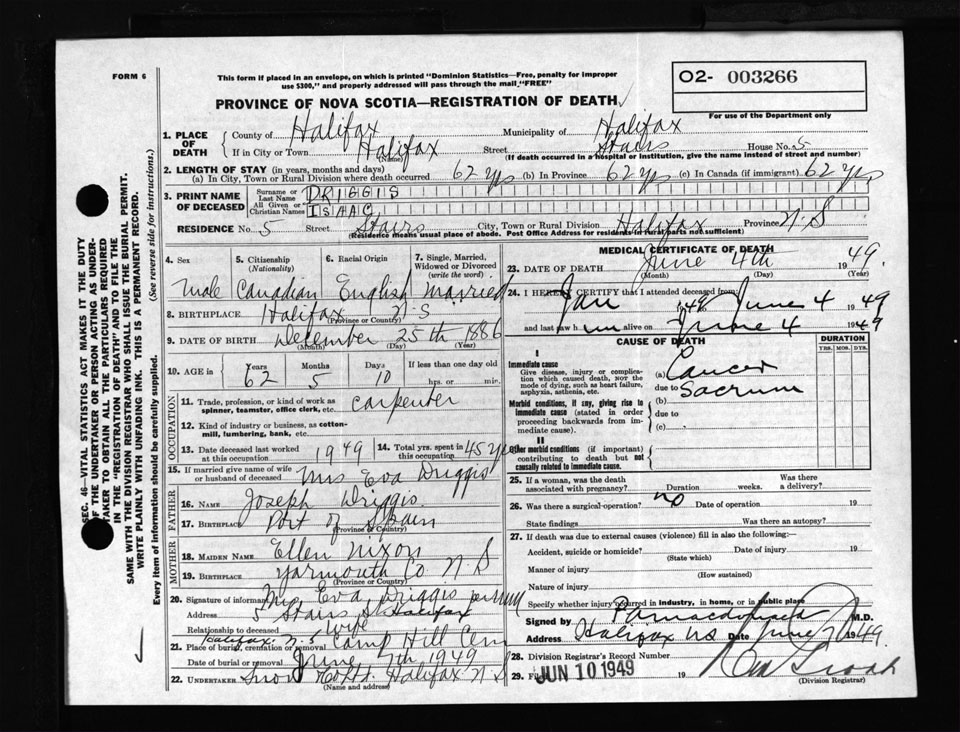 FORM 6
This form if placed in an envelope, on which is printed "Dominion Statistics—Free, penalty for improper
use $300," and properly addressed will pass through the mail "FREE"
O2- 003266
For use of the Department only
PROVINCE OF NOVA SCOTIA—REGISTRATION OF DEATH
1. PLACE OF DEATH
County of Halifax Municipality of Halifax
If in City or Town Halifax (Name) Street Stairs House No. 5
(If death occurred in a hospital or institution, give the name instead of street and number)
2. LENGTH OF STAY (in years, months and days)
(a) In City, Town or Rural Division where death occurred 62 yrs (b) In Province 62 yrs (c) In Canada (if immigrant) 62 yrs
3. PRINT NAME OF DECEASED
Surname or Last Name DRIGGIS
All Given or Christian Names ISAAC
RESIDENCE No. 5 Street Stairs City, Town or Rural Division Halifax Province N.S
(Residence means usual place of abode. Post Office Address for residents in rural parts not sufficient)
4. Sex 5. Citizenship (Nationality) 6. Racial Origin 7. Single, Married, Widowed or Divorced (write the word)
Male Canadian English Married
8. BIRTHPLACE Halifax N.S
(Province or Country)
9. DATE OF BIRTH December 25th 1886
(Month) (Day) (Year)
10. AGE in Years Months Days If less than one day old
62 5 10 hrs. or min.
OCCUPATION
11. Trade, profession, or kind of work as spinner, teamster, office clerk, etc. Carpenter
12. Kind of industry or business, as cotton-mill, lumbering, bank, etc.
13. Date deceased last worked at this occupation 1949 14. Total yrs. spent in this occupation 45 yrs
15. If married give name of wife or husband of deceased Mrs Eva Driggis
FATHER
16. NAME Joseph Driggis
17. BIRTHPLACE Port of Spain
(Province or Country)
MOTHER
18. MAIDEN NAME Ellen Nixon
19. BIRTHPLACE Yarmouth Co N S
(Province or Country)
20. Signature of informant Mrs Eva Driggis
Address 5 Stairs St Halifax
Relationship to deceased Wife
Halifax N.S
21. Place of burial, cremation or removal Camp Hill Cem
Date of burial or removal June 7th 1949
22. UNDERTAKER Snow Co Ltd. Halifax N S
(Name and address)
MEDICAL CERTIFICATE OF DEATH
23. DATE OF DEATH June 4th 1949
(Month) (Day) (Year)
24. I HEREBY CERTIFY that I attended deceased from:
Jan 1949 June 4 1949
and last saw him alive on June 4 1949
CAUSE OF DEATH
DURATION
YRS. MOS. DYS.
I
Immediate cause
Give disease, injury or complication which caused death, NOT the mode of dying, such as heart failure, asphyxia, asthenia, etc.
(a) Cancer
due to Sacrum
Morbid conditions, if any, giving rise to immediate cause (stated in order proceeding backwards from immediate cause).
(b)
due to
(c)
II
Other morbid conditions (if important) contributing to death but not causally related to immediate cause.
25. If a woman, was the death associated with pregnancy? Duration weeks. Was there a delivery?
26. Was there a surgical operation? No Date of operation 19
State findings Was there an autopsy?
27. If death was due to external causes (violence) fill in also the following:
Accident, suicide or homicide? (State which) Date of injury 19
Manner of injury (How sustained)
Nature of injury
Specify whether injury occurred in industry, in home, or in public place
Signed by M.D.
Address Halifax NS Date June 7 1949
28. Division Registrar's Record Number
29. Filed JUN 10 1949 19
(Division Registrar)
SEC. 46—VITAL STATISTICS ACT MAKES IT THE DUTY
OF THE UNDERTAKER OR PERSON ACTING AS UNDER-
TAKER TO OBTAIN ALL THE PARTICULARS REQUIRED
IN THE "REGISTRATION OF DEATH" AND TO FILE THE
SAME WITH THE DIVISION REGISTRAR WHO SHALL ISSUE THE BURIAL PERMIT.
WRITE PLAINLY WITH UNFADING INK. THIS IS A PERMANENT RECORD.
Every item of information should be carefully supplied. (See reverse side for instructions.)